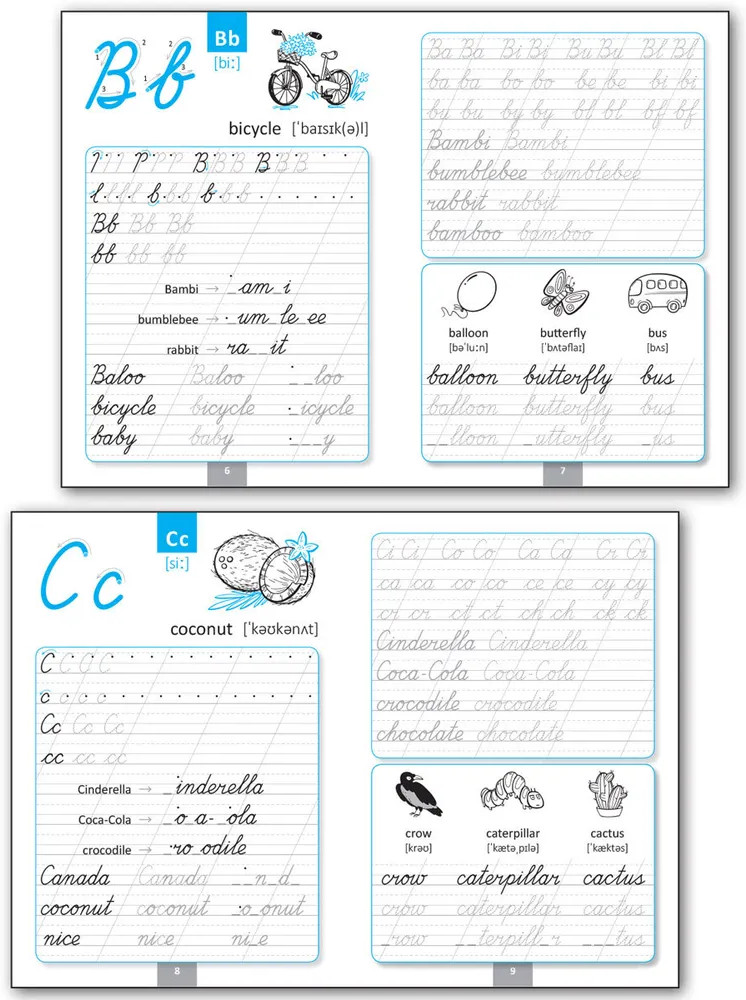 Bb
B b
1 2 3 1 2 3
[biː]
bicycle [ˈbaɪsɪk(ə)l]
l l l l P P P P B B B B B B B
l l l l l b b b b b b b b
Bb Bb Bb
bb bb bb
Bambi → _am_i
bumblebee → _um_le_ee
rabbit → ra__it
Baloo Baloo __loo
bicycle bicycle _icycle
baby baby ___y
6
Ba Ba Bi Bi Bu Bu Bl Bl
ba ba bo bo be be bi bi
bu bu by by bl bl bf bf
Bambi Bambi
bumblebee bumblebee
rabbit rabbit
bamboo bamboo
balloon butterfly bus
[bəˈluːn] [ˈbʌtəflaɪ] [bʌs]
balloon butterfly bus
balloon butterfly bus
__lloon _utterfly _us
7
Cc
C c
[siː]
coconut [ˈkəʊkənʌt]
C C C C
c c c c
Cc Cc Cc
cc cc cc
Cinderella → _inderella
Coca-Cola → _o_a-_ola
crocodile → _ro_odile
Canada Canada __n_d_
coconut coconut _o_onut
nice nice ni_e
8
Ci Ci Co Co Ca Ca Cr Cr
ca ca co co ce ce cy cy
cr cr ct ct ch ch ck ck
Cinderella Cinderella
Coca-Cola Coca-Cola
crocodile crocodile
chocolate chocolate
crow caterpillar cactus
[krəʊ] [ˈkætəˌpɪlə] [ˈkæktəs]
crow caterpillar cactus
crow caterpillar cactus
_row __terpill_r ___tus
9